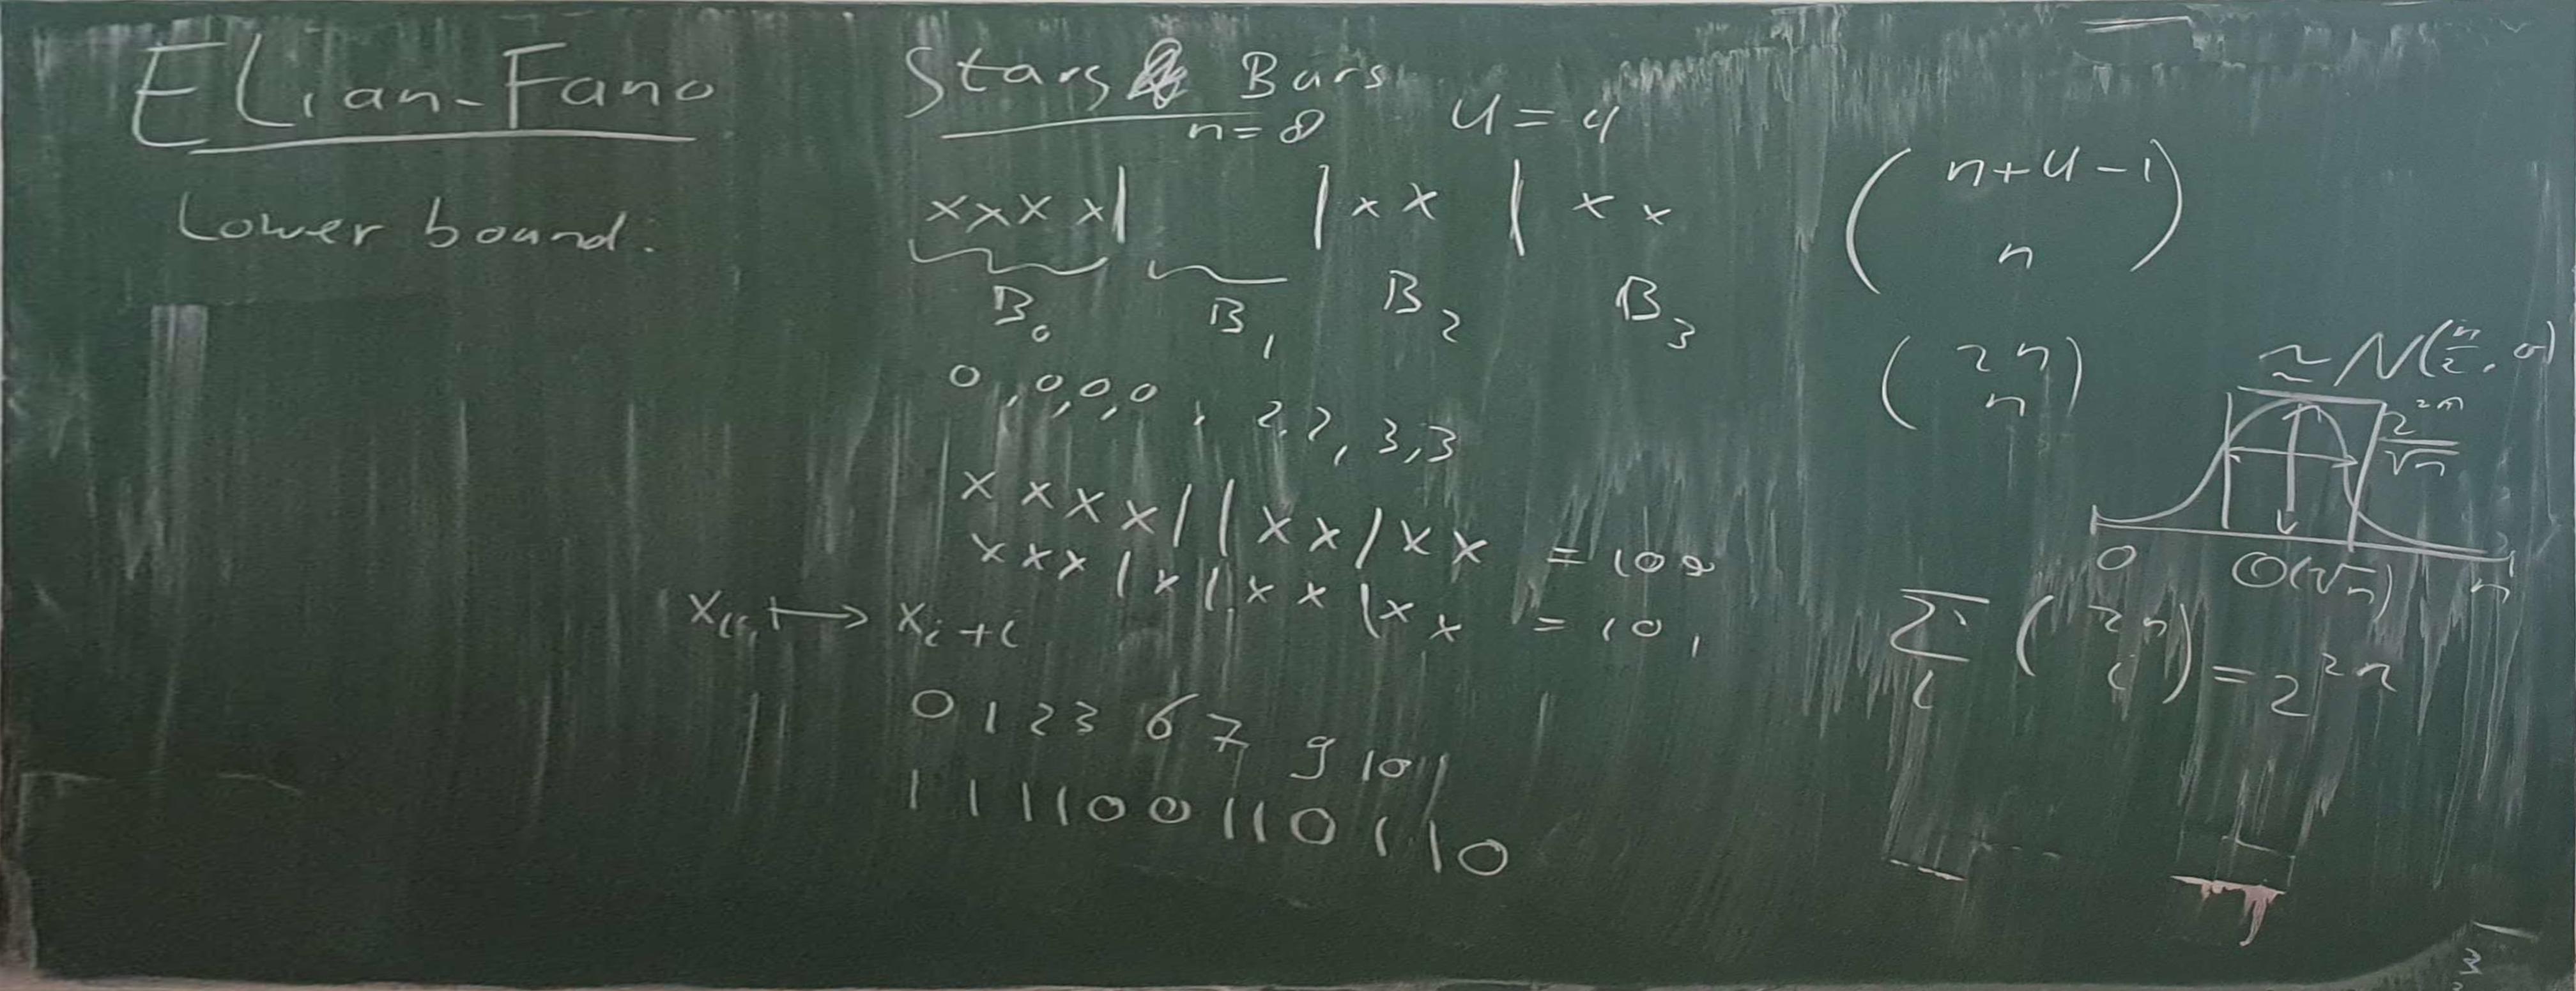 Elian-Fano
Lower bound.
Stars & Bars
n=8 U=4
xxxx| |xx | xx
B₀ B₁ B₂ B₃
0,0,0,0, 2,2,3,3
xxxx||xx/xx = 100
xxx|x|xx|xx = 101
↦ x_i+i
0 1 2 3 6 7 9 10
111100110110
(n+U-1 n)
(2n n)
≈N(n/2, σ)
2^2n/√n
0 O(√n) n
∑_i (2n i) = 2^2n